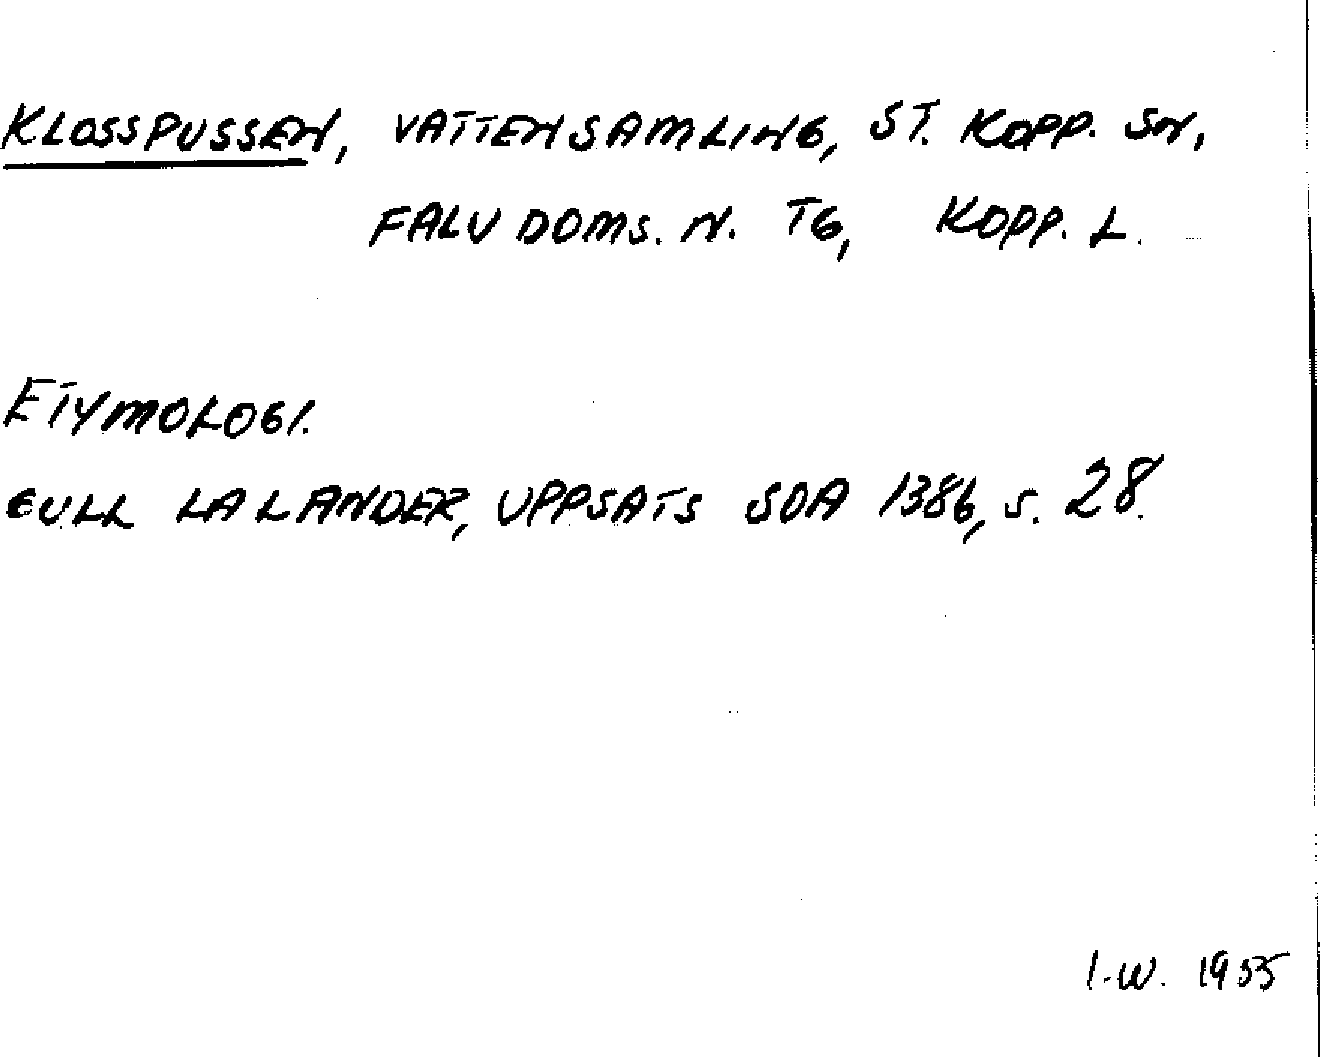 KLOSSPUSSEN, VATTENSAMLING, ST. KOPP. SN,
FALU DOMS. N. TG, KOPP. L.
ETYMOLOGI.
GULL LALANDER, UPPSATS SOA 1386, S. 28.
I.W. 1955